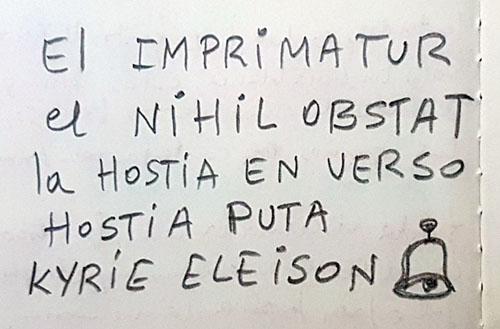 El IMPRiMATUR
el NiHiL OBSTAT
la HOSTiA EN VERSO
HOSTiA PUTA
KYRiE ELEiSON